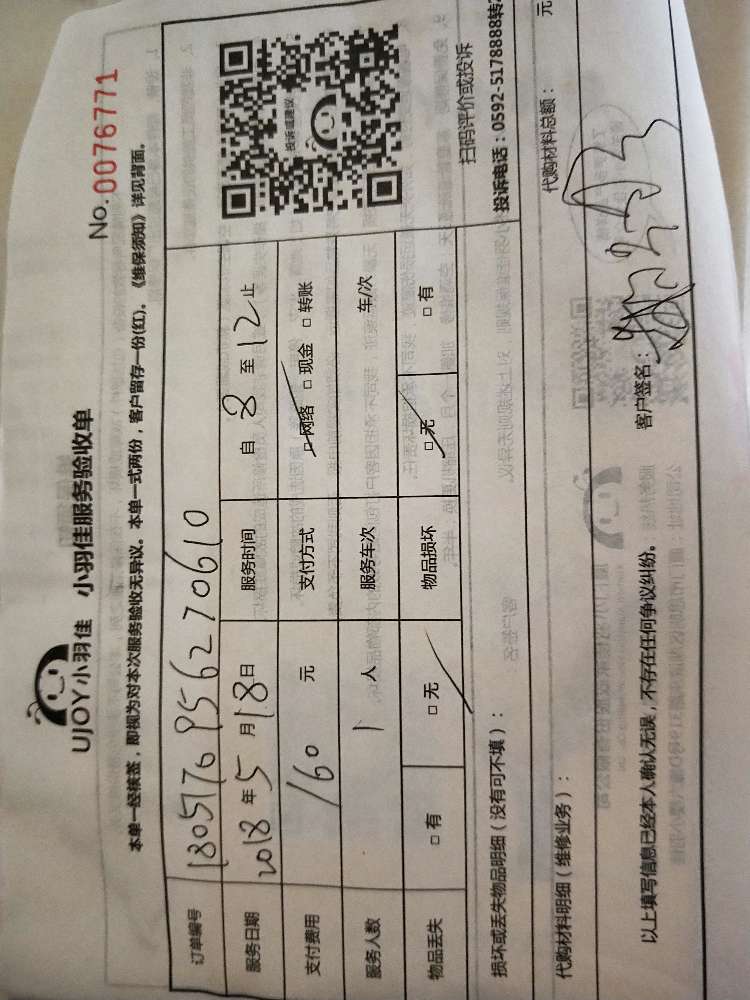 UJOY小羽佳 小羽佳服务验收单
No. 0076771
本单一经核签，即视为对本次服务验收无异议。本单一式两份，客户留存一份(红)。《维保须知》详见背面。
订单编号 1805176956270610
服务日期 2018年5月18日 服务时间 自8至12止
支付费用 160元 支付方式 □网络 □现金 □转账
服务人数 1人 服务车次 车/次
物品丢失 □有 □无 物品损坏 □无 □有
投诉或建议
扫码评价或投诉
投诉电话：0592-5178888转
损坏或丢失物品明细（没有可不填）：
代购材料明细（维修业务）： 代购材料总额： 元
以上填写信息已经本人确认无误，不存在任何争议纠纷。 客户签名：